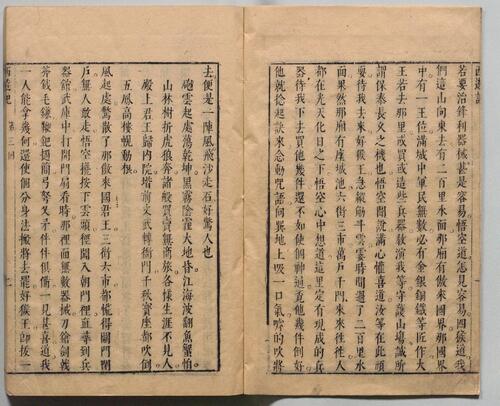 西遊記
若要治鋒利器械甚是容易悟空道怎見容易四猴道我
們這山向東去有二百里水面那廂有傲來國界那國界
中有一王位滿城中軍民無數必有金銀銅鐵等匠作大
王若去那里或買或造些兵器教演我等守護山場誠所
謂保泰長久之機也悟空聞說滿心歡喜道汝等在此頑
耍待我去來好猴王急縱觔斗雲霎時間過了二百里水
面果然那廂有座城池六街三市萬戶千門來來往往人
都在光天化日之下悟空心中想道這里定有現成的兵
器待我下去買他幾件還不如使個神通覓他幾件倒好
他就捻起訣來念動咒語向巽地上吸一口氣嘑的吹將
去便是一陣風飛沙走石好驚人也
砲雲起處蕩乾坤黑霧陰霾大地昏江海波翻魚蟹怕
山林樹折虎狼奔諸般買賣無商旅各樣生涯不見人
殿上君王歸內院堦前文武轉衙門千秋寶座都吹倒
五鳳高樓幌動根
風起處驚散了那傲來國君王三街六市都慌得關門閉
戶無人敢走悟空纔按下雲頭徑闖入朝門裡直尋到兵
器館武庫中打開門扇看時那裡面無數器械刀鎗劍戟
斧鉞毛鎌鞭鈀撾簡弓弩叉矛件件俱備一見甚喜道我
一人能拿幾何還使個分身法搬將去罷好猴王即拔一
西遊記 第三回